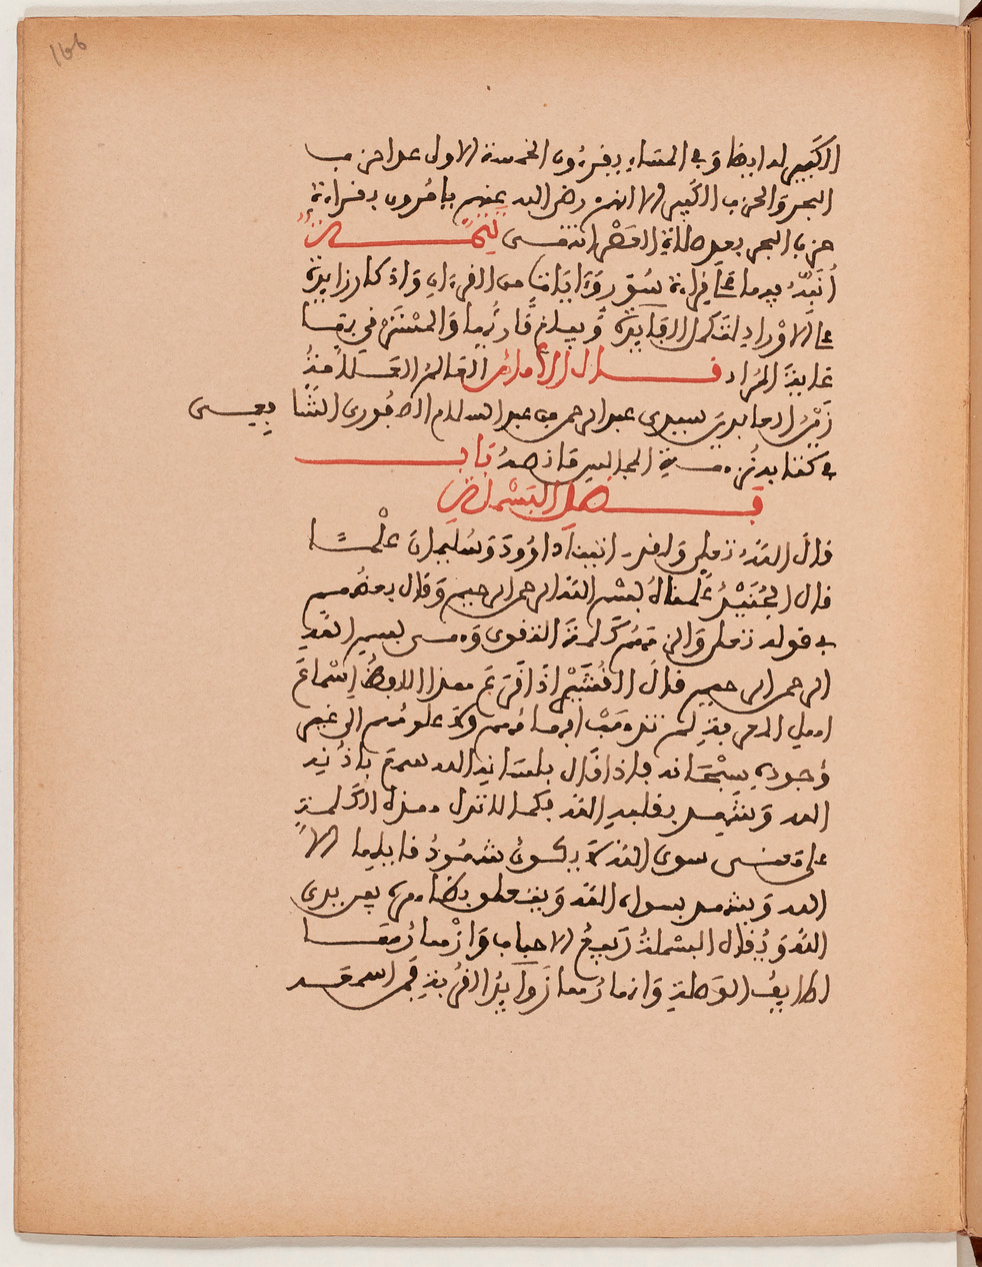 166
الكَبِير له ايضا وَفي المسَاء يقرءون الخمسة الاول عدا حزب
البحر وَالحزب الكَبير الا انه رضي الله عنهم يامُرون بقراءة
حزب البحر بعد صلاة العَصْر انتهى
أنبّه بهما عَلَى قراءة سُوَر وَءايات من القرءان وَاذكار زايدة
عَلى الاوْراد لتكمل الفايدة وَ قارئها وَالمنتهى في
غايَة المُراد قال الامام العَالم العَلامَة
زَيْن العابدين سيدي عبد الرحمن بن عبد السلام الصفوري الشافعي
في كتابه نُزهة المجالس مَا نصهُ بَاب
فَصل البَسْملة
قال اللهُ تعلى وَلقد اتينا دَاوُودَ وَسُلَيمان علْمًا
قال الجُنَيْدُ علمناهُ بسم الله الرحمن الرحيم وَقال بعضهم
في قوله تعلى وَالزمَهُم كَلمة التقوى وَهي بسم الله
الرحمن الرحيم قال القُشَيْري اذا قَرَعَ هذا اللفظُ اسْماعَ
اهل المعرفة لم تذهَبْ افهامُهم وَلا علومُهم الى غير
وُجوده سبْحَانه فاذا قال بلسَانه الله سمعَ باذُنه
الله وَشهد بقلبه الله فكما لا تدل هذه الكَلمة
على معنى سوى الله لا يكون شهُودُ قايلها الا
الله وَيشهد بسواه الله وَ
اللهُ وَيُقال البسْملةُ رَبيعُ الاحباب وَازْهارُهَا
لطايفُ الوَصلة وَانهارُهَا زَوَايدُ القُربة فمن اسمعَه